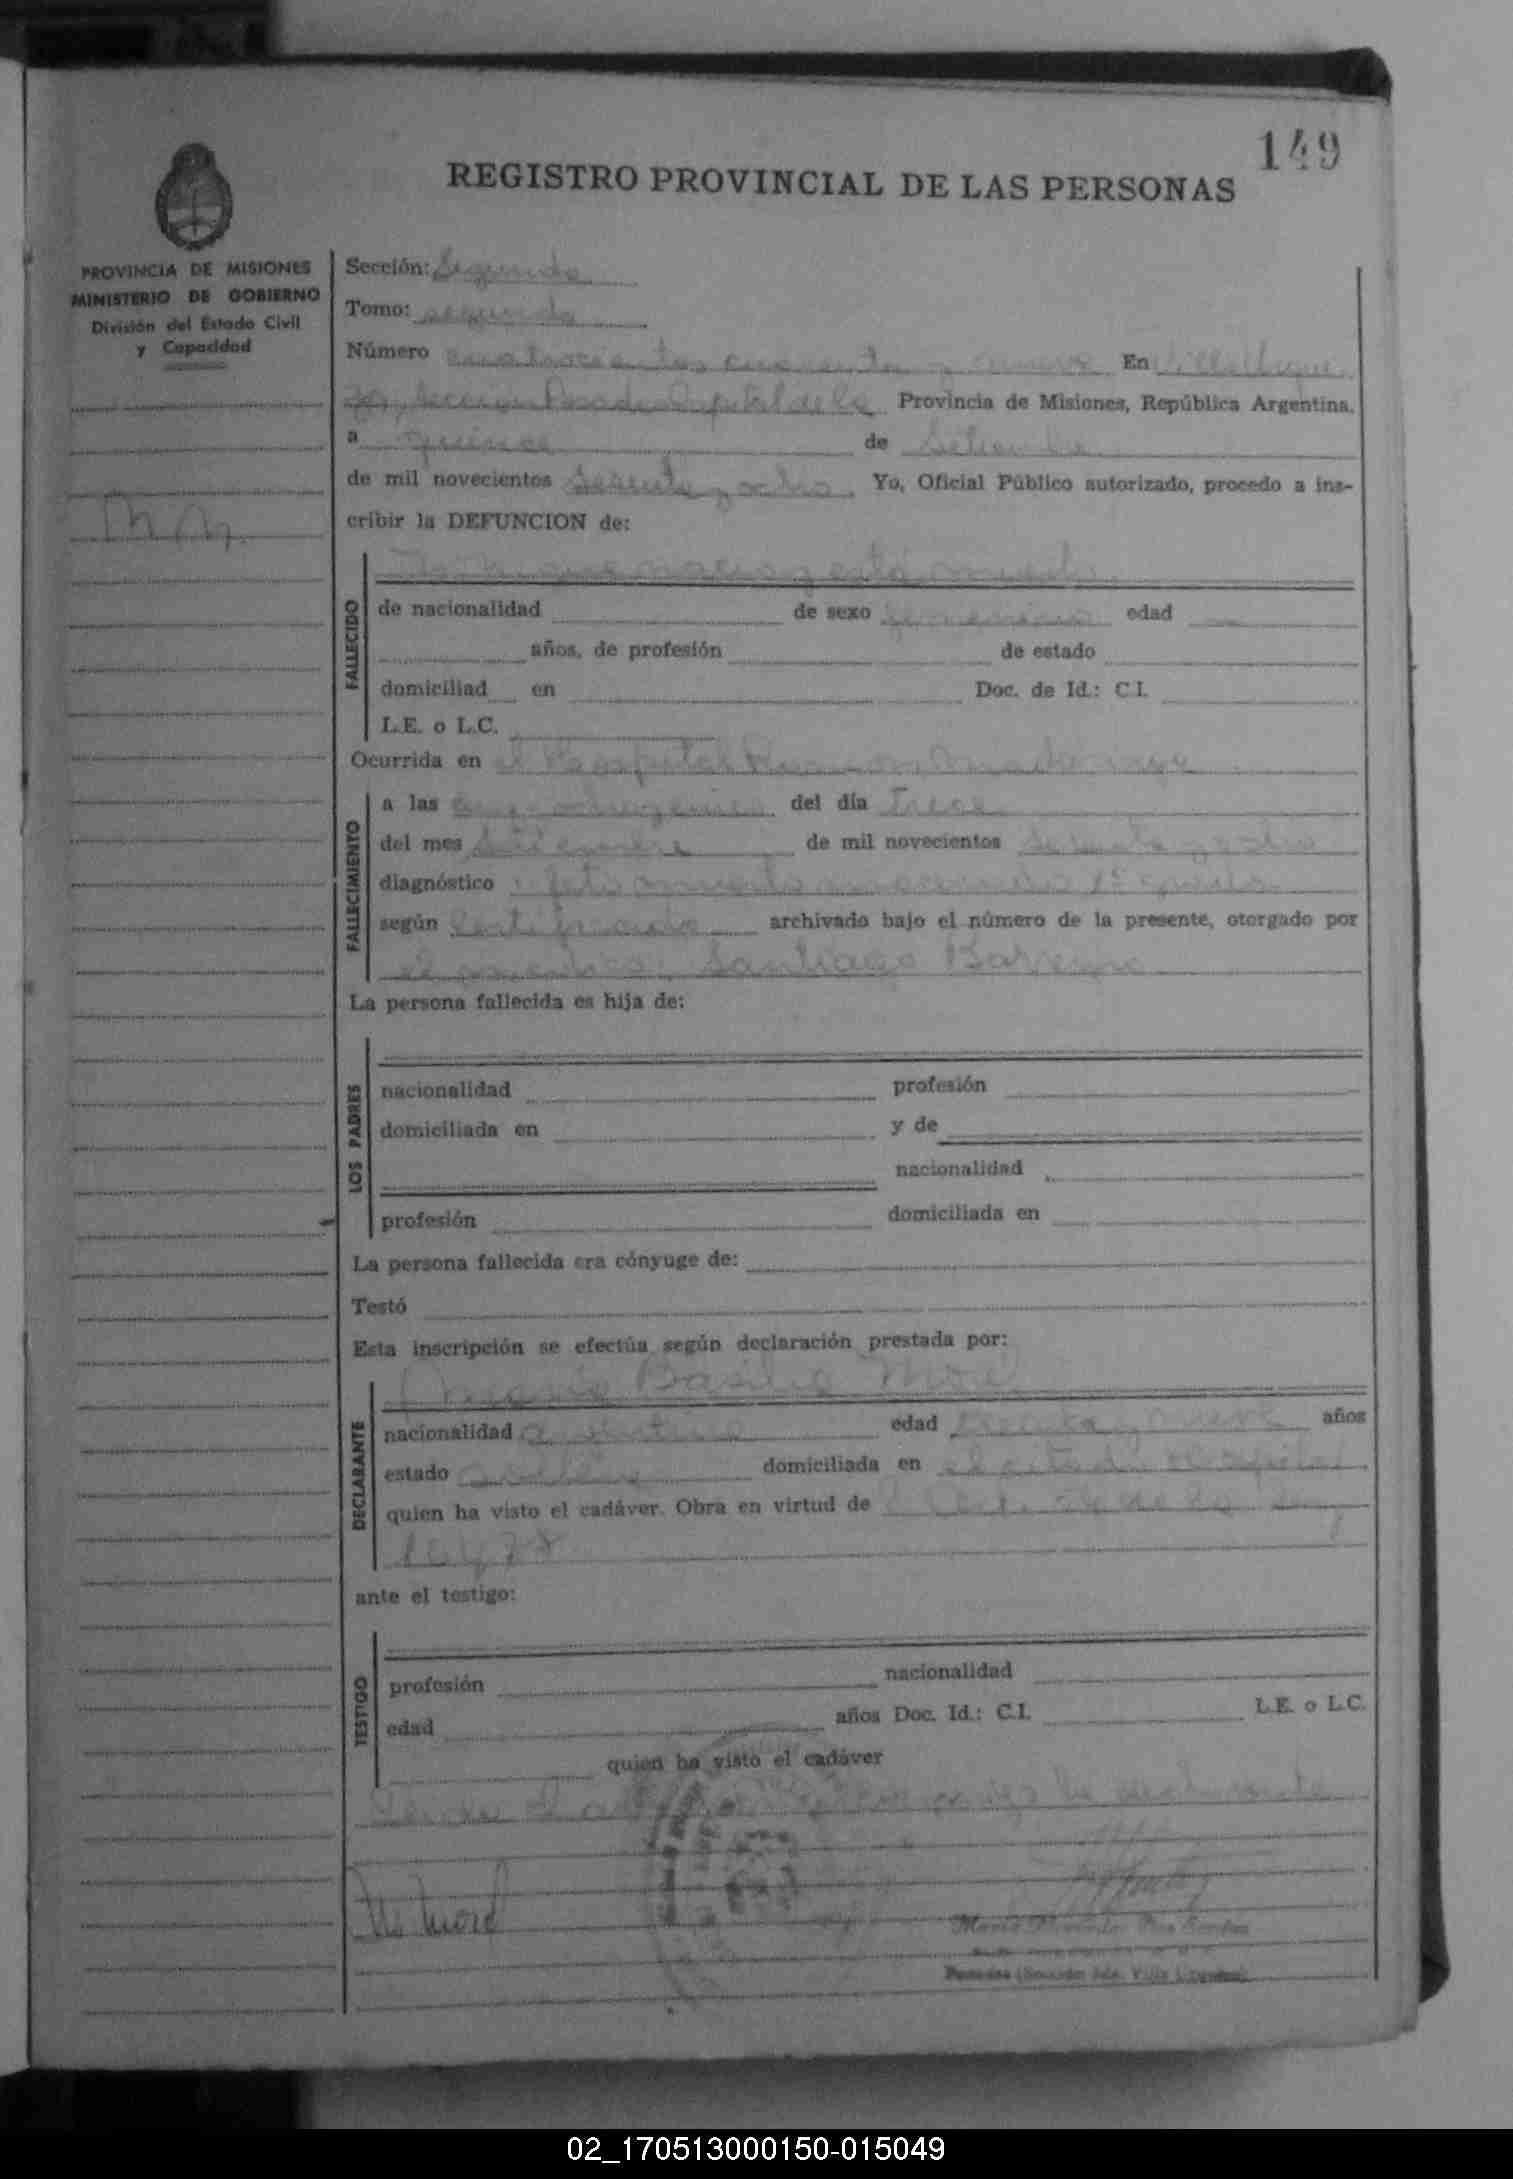 149
REGISTRO PROVINCIAL DE LAS PERSONAS
PROVINCIA DE MISIONES
MINISTERIO DE GOBIERNO
División del Estado Civil
y Capacidad
Sección: Segunda
Tomo: segundo
Número cuatrocientos cuarenta y nueve En Villa Urquiza
Sección Posadas Capital de la Provincia de Misiones, República Argentina,
a quince de Setiembre
de mil novecientos sesenta y ocho. Yo, Oficial Público autorizado, procedo a ins-
cribir la DEFUNCION de:
N. N. que nació y está muerta
FALLECIDO
de nacionalidad de sexo femenino edad
años, de profesión de estado
domiciliad en Doc. de Id.: C.I.
L.E. o L.C.
Ocurrida en el Hospital Ramón Madariaga
FALLECIMIENTO
a las del día trece
del mes Setiembre de mil novecientos sesenta y ocho
diagnóstico : feto muerto macerado 1º grado
según certificado archivado bajo el número de la presente, otorgado por
el médico: Santiago Barreyro
La persona fallecida es hija de:
LOS PADRES
nacionalidad profesión
domiciliada en y de
nacionalidad
profesión domiciliada en
La persona fallecida era cónyuge de:
Testó
Esta inscripción se efectúa según declaración prestada por:
DECLARANTE
Basilio Morel
nacionalidad argentina edad treinta y nueve años
estado soltero domiciliada en el citado Hospital
quien ha visto el cadáver. Obra en virtud de
ante el testigo:
TESTIGO
profesión nacionalidad
edad años Doc. Id.: C.I. L.E. o L.C.
quien ha visto el cadáver
Leída el acta declarante
M. Morel
Posadas (Sección Villa Urquiza)
02_170513000150-015049